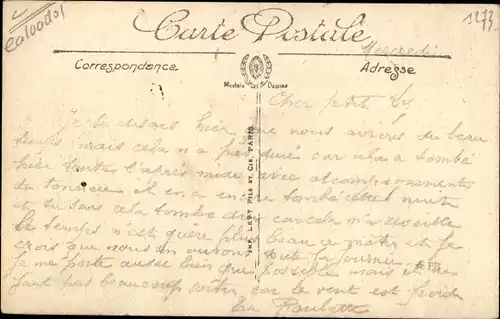 1272
Carte Postale
Mercredi
Correspondance
Adresse
Modèle Déposé
Cher petit
Je te disais hier que nous avions du beau
temps mais cela n'a pas duré car il a tombé
toute l'après midi avec accompagnement
de tonnerre il en a encore tombé cette nuit
et tu sais cela tombe car cela m'a réveillé
le temps n'est guère plus beau ce matin et je
crois que nous en aurons toute la journée
je me porte aussi bien que possible mais il ne
faut pas beaucoup sortir car le vent est froid
Ta Paulette
IMP. LEVY FILS ET CIE. PARIS